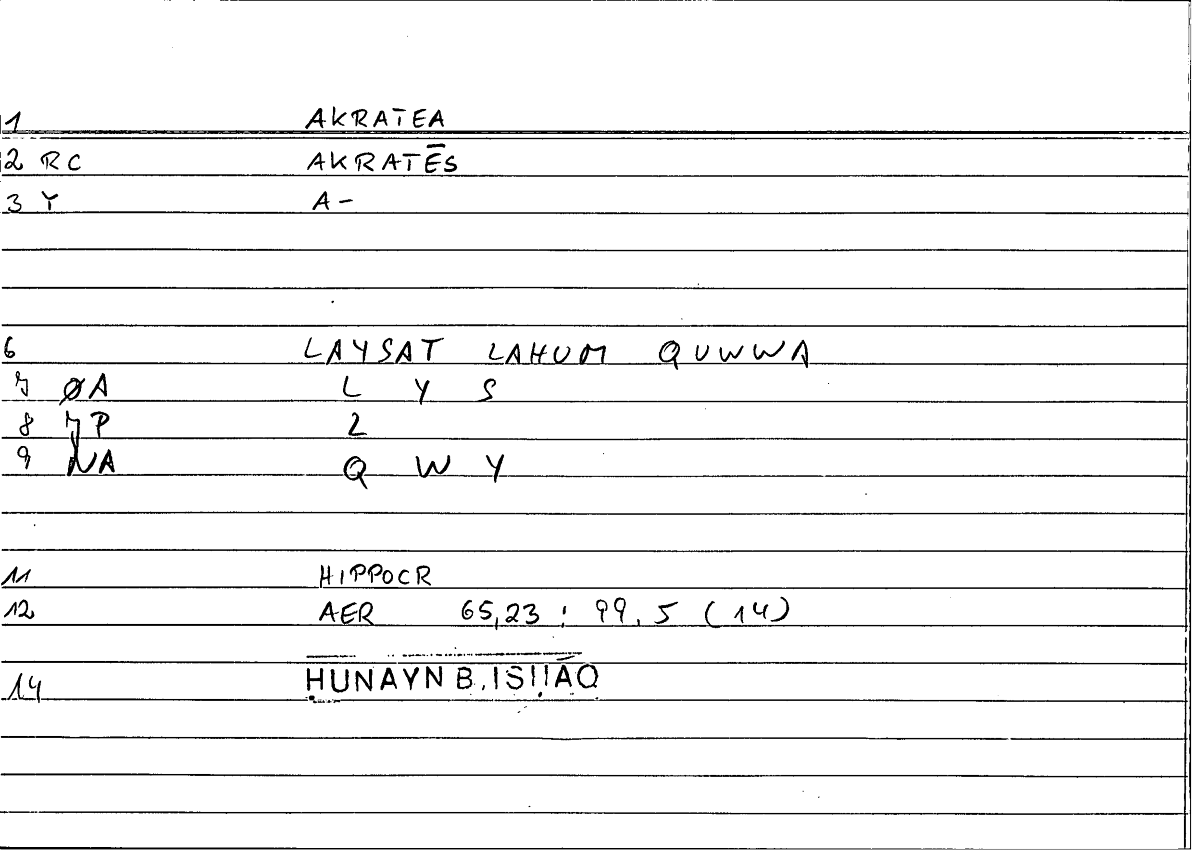 1 AKRATEA
2 RC AKRATĒS
3 Y A-
6 LAYSAT LAHUM QUWWA
7 ØA L Y S
8 JP 2
9 NA Q W Y
11 HIPPOCR
12 AER 65,23 : 99,5 (14)
14 ḤUNAYN B. ISḤĀQ